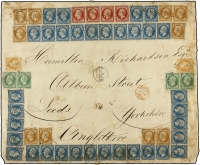 Hamilton Richardson Esqr
Albion Street
Leeds
Yorkshire
Angleterre